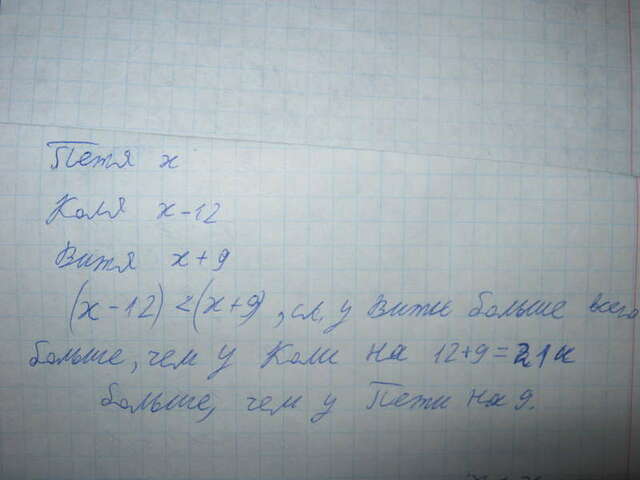 Петя х
Коля х-12
Витя х+9
(х-12)<(х+9), сл, у Вити больше всего
больше, чем у Коли на 12+9=21 и
больше, чем у Пети на 9.